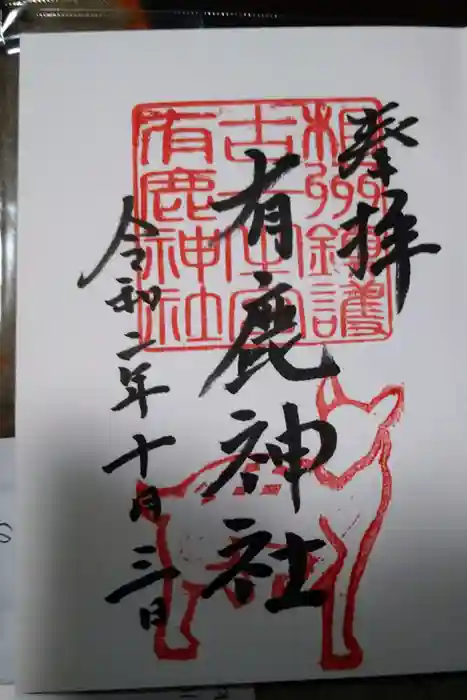 奉拝
有鹿神社
令和二年十月三日
相州鎮護
古
有鹿神社